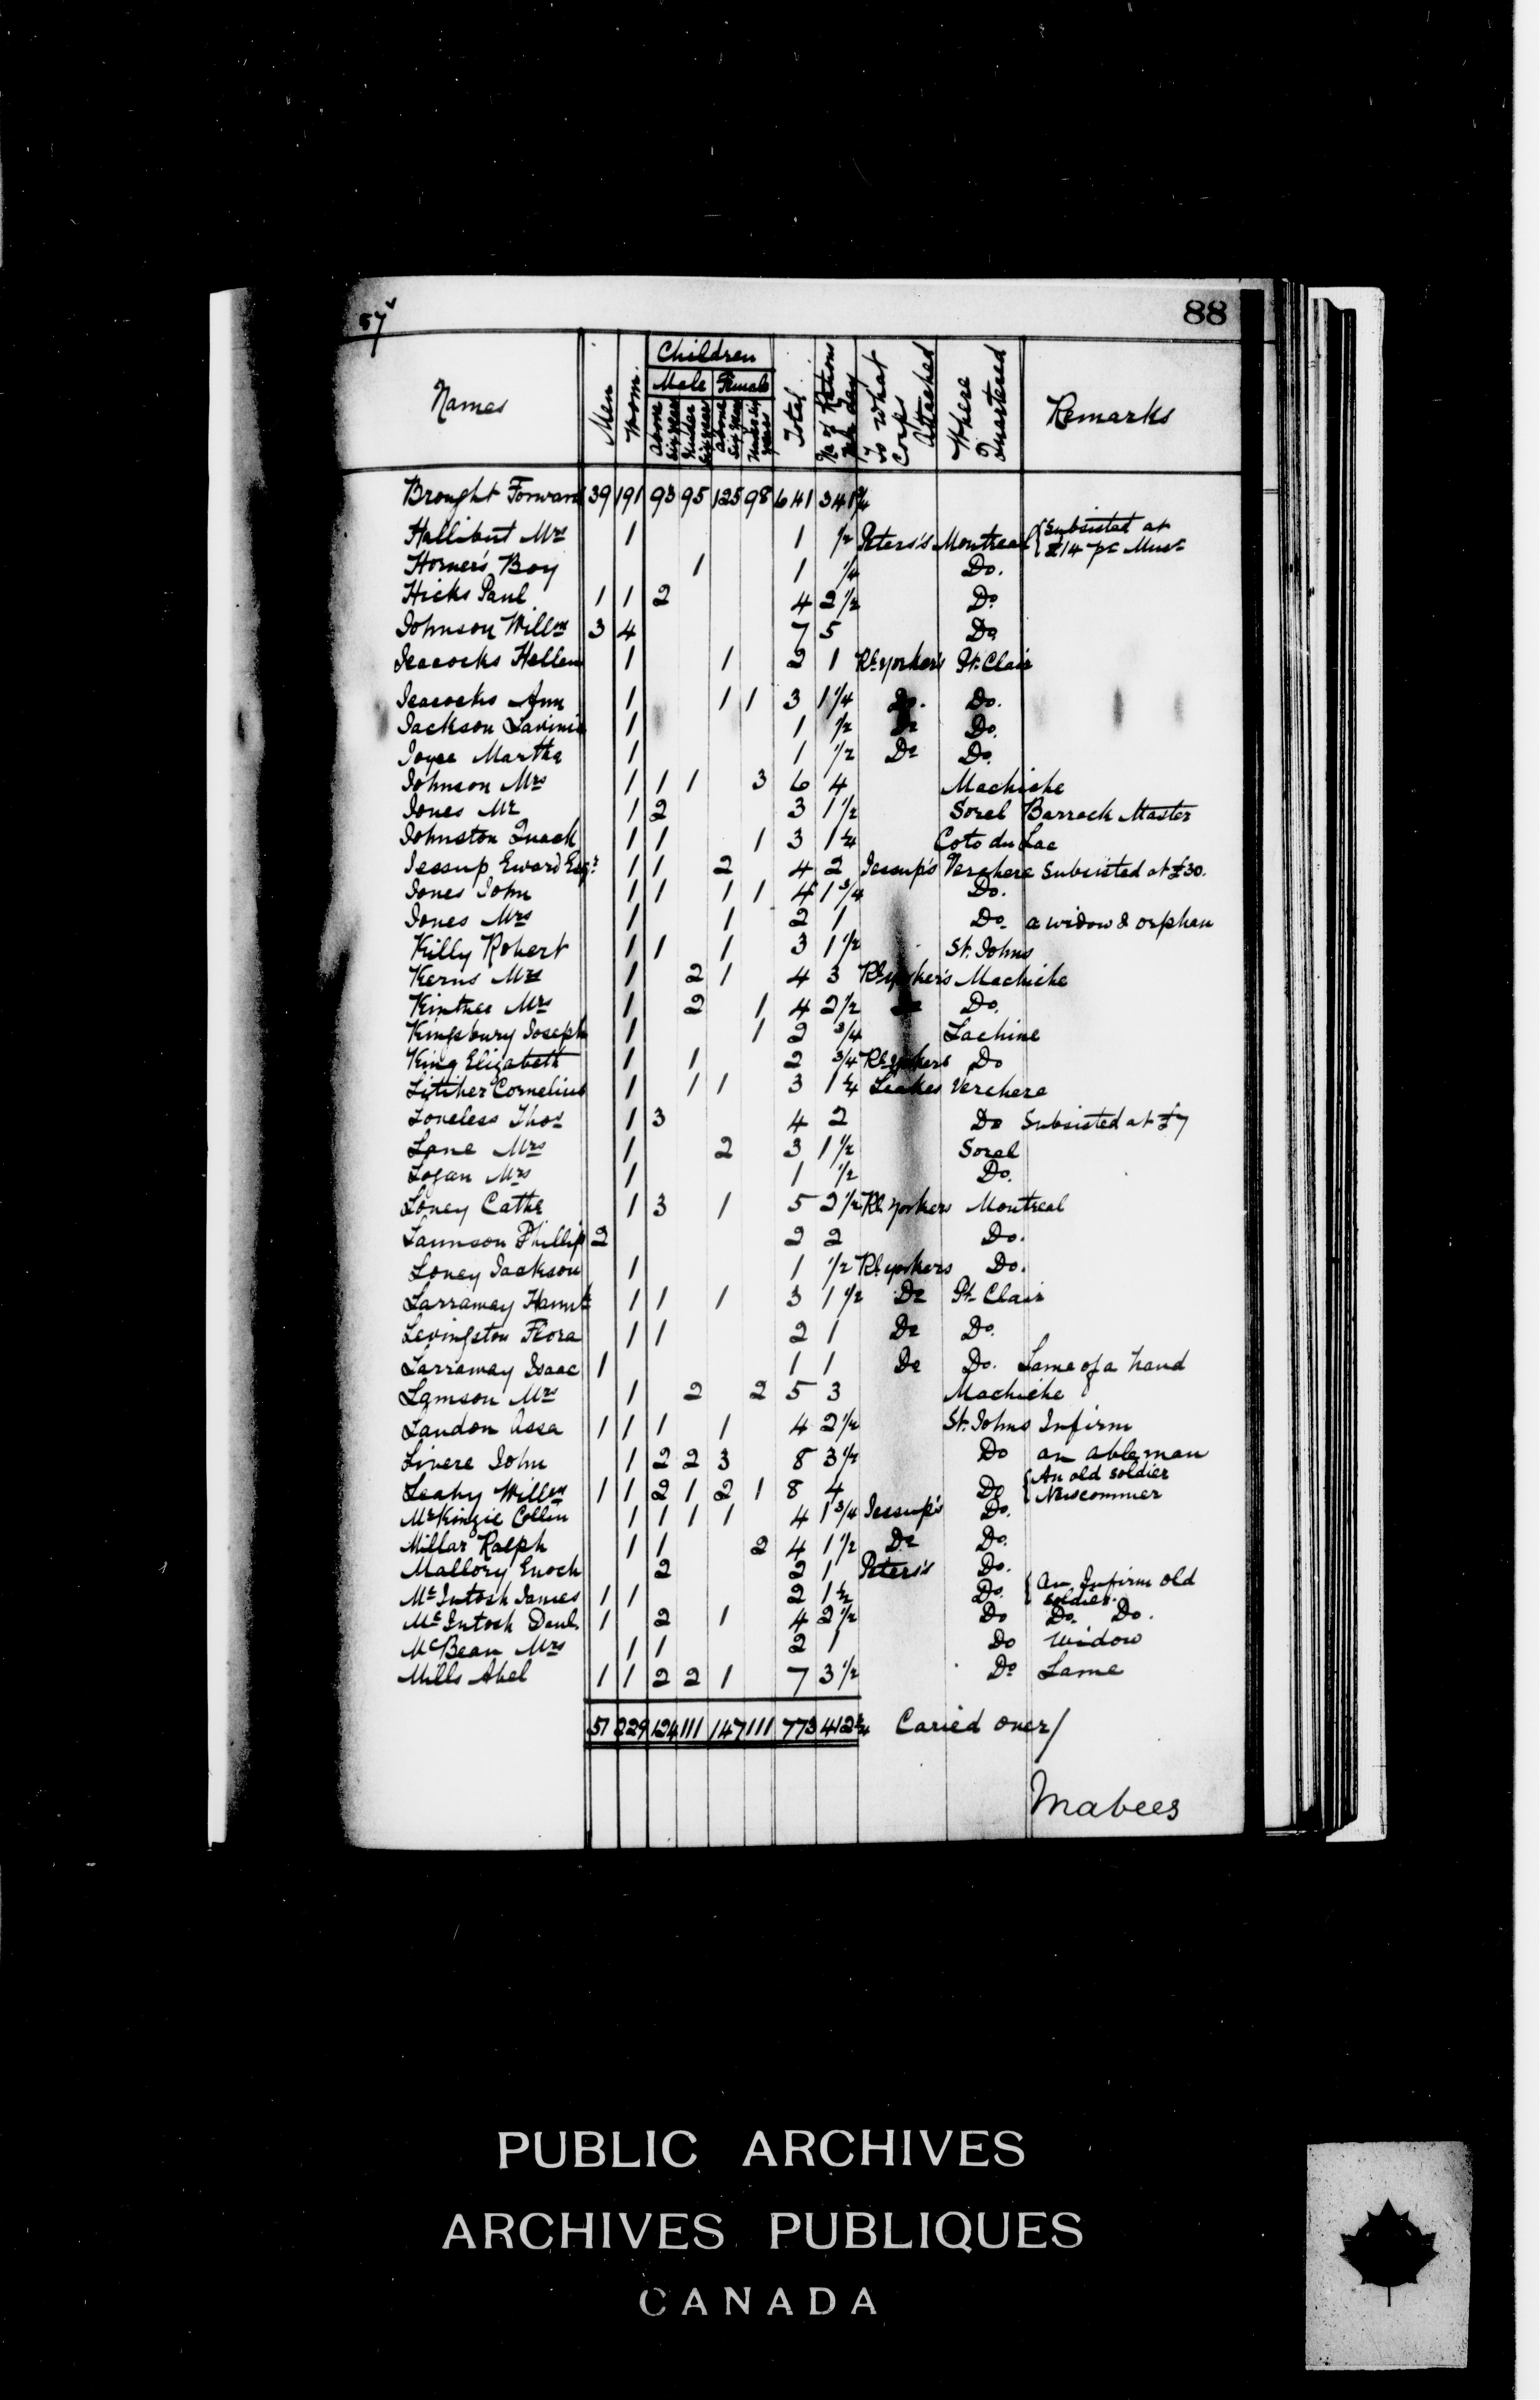 57v
88
Names Men Wom. Children Total No of Rations per day To what Corps Attached Where Quartered Remarks
Male Female
above six years under six years above six years under six years
Brought Forward 39 191 93 95 125 98 641 341 3/4
Hallibut Mrs 1 1 1/2 Peters's Montreal { Subsisted at
£14 pr Mus
Horner's Boy 1 1 1/4 Do.
Hicks Paul 1 1 2 4 2 1/2 Do
Johnson Willm 3 4 7 5 Do
Jeacocks Hellen 1 1 2 1 Rl. yorker's Pt. Clair
Jeacocks Ann 1 1 1 3 1 1/4 Do. Do.
Jackson Lavinia 1 1 1/2 Do Do.
Joyce Martha 1 1 1/2 Do Do.
Johnson Mrs 1 1 1 3 6 4 Machiche
Jones Mr 1 2 3 1 1/2 Sorel Barrack Master
Johnston Quack 1 1 1 3 1 1/4 Coto du Lac
Jessup Eward Esqr. 1 1 2 4 2 Jessup's Verchere Subsisted at £30.
Jones John 1 1 1 1 4 1 3/4 Do.
Jones Mrs 1 1 2 1 Do. a widow & orphan
Killy Robert 1 1 1 3 1 1/2 St. Johns
Kerns Mrs 1 2 1 4 3 Rl. yorker's Machiche
Kintner Mrs 1 2 1 4 2 1/2 Do Do.
Kingsbury Joseph 1 1 2 3/4 Lachine
King Elizabeth 1 1 2 3/4 Rl. yorkers Do
Litiher Cornelius 1 1 1 3 1 1/4 Leakes Verchere
Loneless Thos 1 3 4 2 Do Subsisted at £7
Lane Mrs 1 2 3 1 1/2 Sorel
Logan Mrs 1 1 1/2 Do.
Loney Cathe 1 3 1 5 2 1/2 Rl. yorkers Montreal
Laurison Phillip 2 2 2 Do.
Loney Jackson 1 1 1/2 Rl. yorkers Do.
Larraway Hannh 1 1 1 3 1 1/2 Do Pt. Clair
Levingston Flora 1 1 2 1 Do Do.
Larraway Isaac 1 1 1 Do Do. Lame of a hand
Lamson Mrs 1 2 2 5 3 Machiche
Landon Assa 1 1 1 1 4 2 1/2 St. Johns Infirm
Livere John 1 2 2 3 8 3 1/2 Do an able man
Leahy Willm 1 1 2 1 2 1 8 4 Do { An old soldier
Newcommer
McKinzie Collin 1 1 1 1 4 1 3/4 Jessup's Do.
Millar Ralph 1 1 2 4 1 1/2 Do Do.
Mallory Enoch 2 2 1 Peters's Do.
McIntosh James 1 1 2 1 1/2 Do. { An Infirm old
soldier.
McIntosh Danl. 1 2 1 4 2 1/2 Do Do. Do.
McBean Mrs 1 1 2 1 Do Widow
Mills Abel 1 1 2 2 1 7 3 1/2 Do Lame
51 229 124 111 147 111 773 412 3/4 Caried over/
Mabees
PUBLIC ARCHIVES
ARCHIVES PUBLIQUES
CANADA